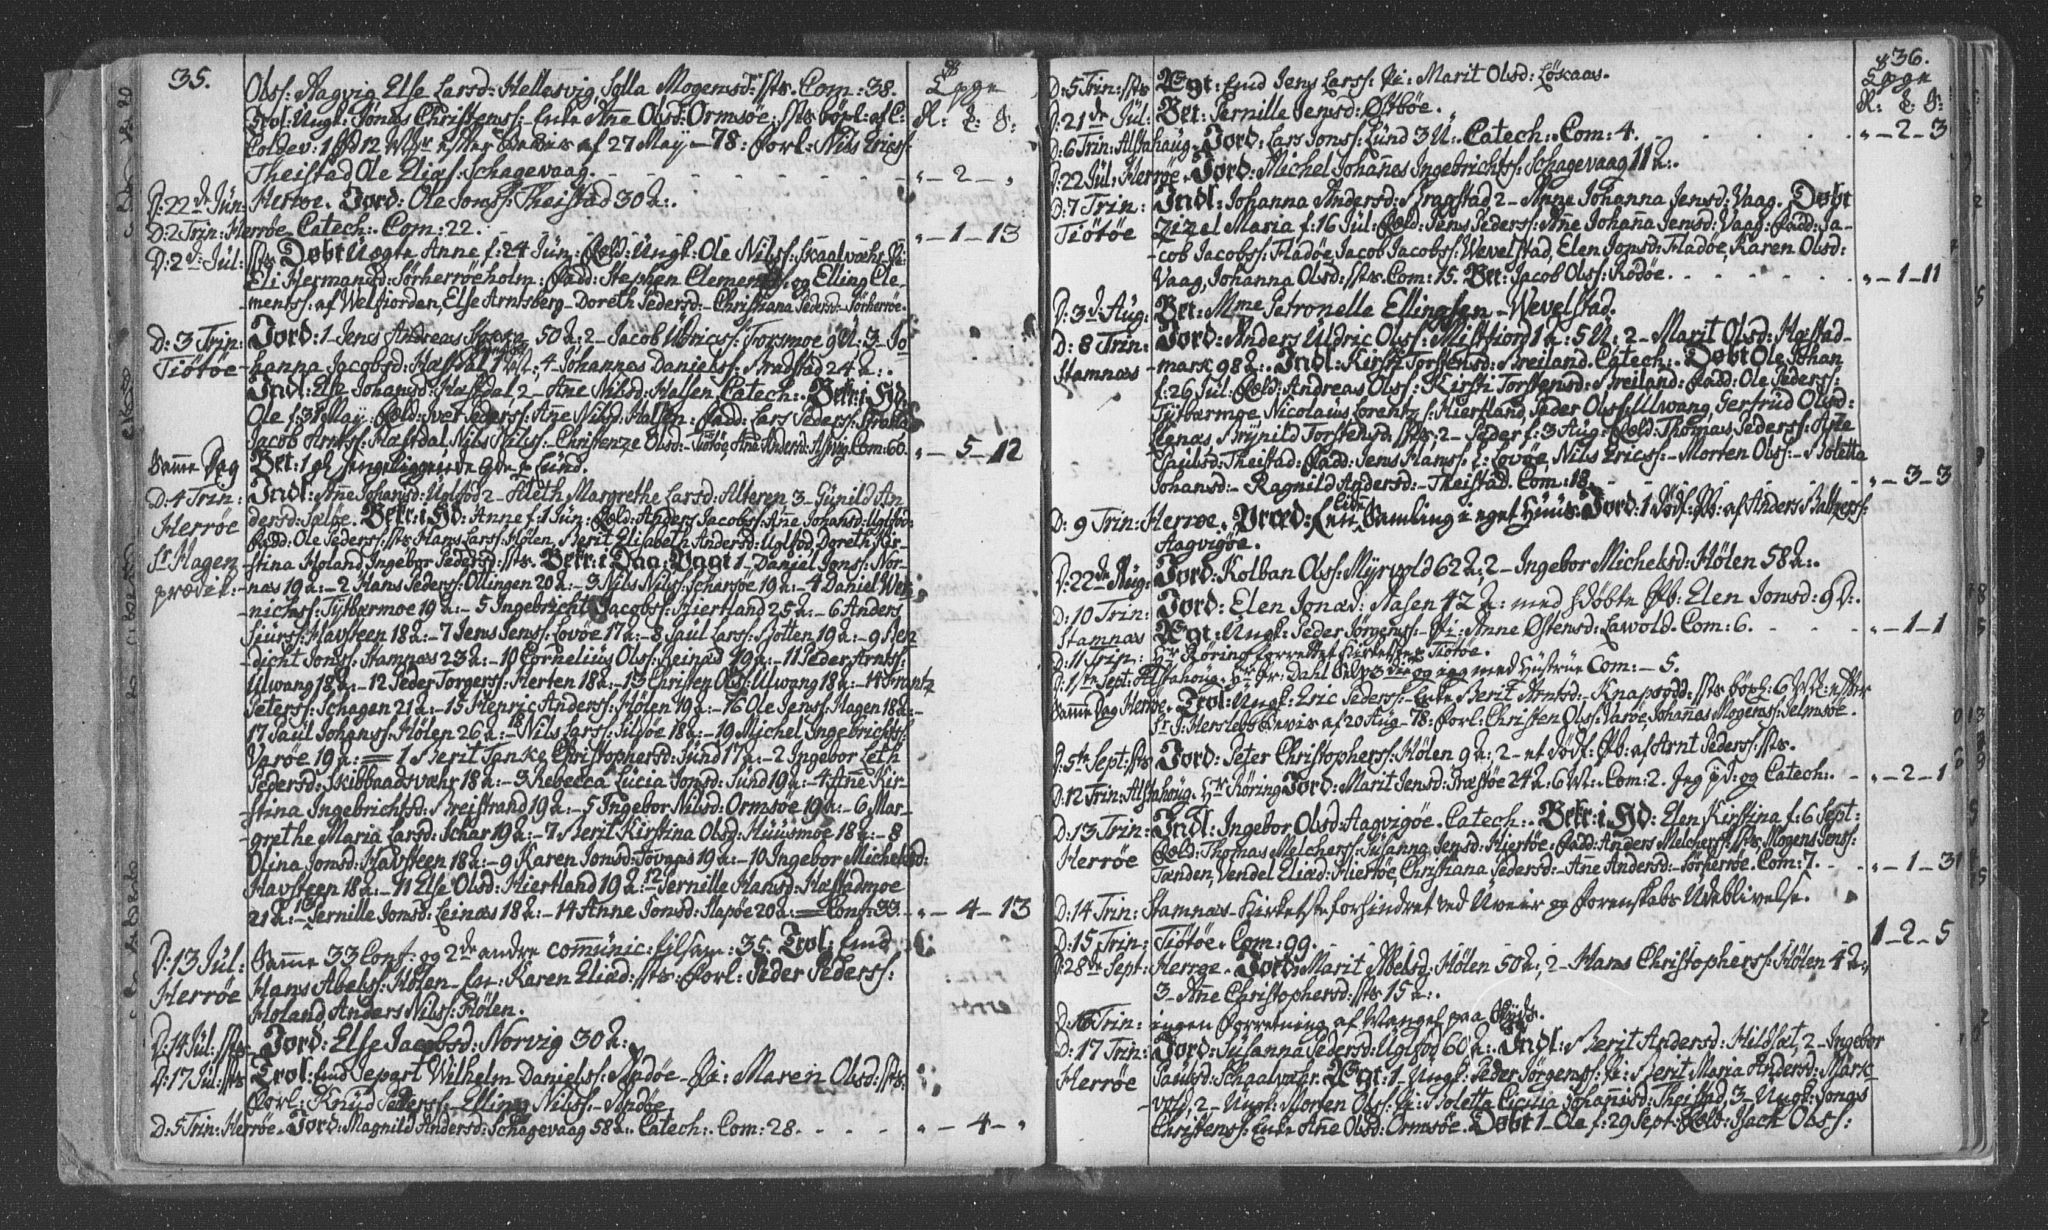 35.
Olss: Aagvig Else Larsd: Hellesvig, Com: 38.
Trol: Ungk: Jonas Christenss: Enke Ane Olsd: Ormsøe:
af 27 May - 78: forl: Nils Ericss:
Theistad Ole Eliass: Schagevaag.
- 2 -
D: 22de Jun: Herrøe. Jord: Ole Jonss: Theistad 30 A:.
D: 2 Trin: Herrøe. Catech: Com: 22.
- 1 - 13
D: 2d Jul: sts. Døbt Uægte Anne f: 24 Jun: Fæld: Ungk: Ole Nilss: Skaalvæhr Pi:
Eli Hermansd: Sørherrøeholm: Fadd: Stephen Clemen og Elling Cle-
mentss: af Welfiorden, Else Arntsberg - Doreth Pedersd: - Christiana Pedersd: Sørherrøe.
D: 3 Trin: Jord: 1 Jens Andreas 50 A: 2 - Jacob Ulricss: Forsmoe 9 U: 3 - Jo
Tiøtøe - hanna Jacobsd: Hæstdal 4 Johannes Danielss: Bradstad 24 A:.
Indl: Else Johansd: Hæstdal, 2 - Ane Nilsd: Halsen, Catech:. Bekr: i Hd:
Ole f: 31 May Fæld: Ane Nilsd: Halsen: Fadd: Lars Pederss:
Jacob Arntss: Hæstdal Nils Nilss: - Christenze Olsd: Tiøtøe, Ane Andersd: Com: 60.
- 5 - 12
Samme Dag Bet: 1
D: 4 Trin: Indl: Anne Johansd: Uglsød 2 - Aleth Margrethe Larsd: Alteren 3 - Gunild An
Herrøe dersd: Sæløe. Bekr: i Hd: Anne f: 1 Jun: Fæld: Anders Jacobss: Ane Johansd: Uglsød:
Fadd: Ole Pederss: sts Hans Larss: Hølen, Berit Elisabeth Andersd: Uglsød, Doreth Kir-
Sr Hagen stina Holand, Ingebor Pedersd: sts. Bekr: i Daa: Pagt 1 - Daniel Jonss: Nor-
prædik: næs 19 a: - 2 Hans Pederss: Ollingen 20 a: - 3 Nils Nilss: Scharsøe 19 a: - 4 Daniel Wer-
nichss: Tytbærmoe 19 a: - 5 Ingebricht Jacobss: Hiertland 25 a: - 6 Anders
Siurss: Havsteen 18 a: - 7 Jens Jenss: Lovøe 17 a: - 8 Paul Larss: Botten 19 a: - 9 Ben
dicht Jonss: Stamnæs 23 a: - 10 Cornelius Olss: Leinæs 19 a: - 11 Peder Arntss:
Ulwang 18 a: - 12 Peder Torgerss: Herten 18 a: - 13 Christen Olss: Ulwang 18 a: - 14 Frantz
Peterss: Schagen 21 a: - 15 Henric Anderss: Hølen 19 a: - 16 Ole Jenss: Hagen 18 a: -
17 Paul Johanss: Hølen 26 a: - 18 Nils Larss: Tilsøe 18 a: - 19 Michel Ingebrichtss:
Varøe 19 a: = 1 Berit Tanke Christophersd: Sund 17 a: - 2 Ingebor Leth
Pedersd: Skibbaadsvæhr 18 a: - 3 Rebecca Lucia Jonsd: Sund 19 a: - 4 Ane Kir-
stina Ingebrichtsd: Breistrand 19 a: - 5 Ingebor Nilsd: Ormsøe 19 a: - 6 Mar-
grethe Maria Larsd: Schar 19 a: - 7 Berit Kirstina Olsd: Huusmoe 18 a: - 8
Olina Jonsd: Havsteen 18 a: - 9 Karen Jonsd: Forvaas 19 a: - 10 Ingebor Michelsd:
Havsteen 18 a: - 11 Else Olsd: Hiertland 19 a: 12 - Pernille Hansd: Hæstadmoe
21 a: - 13 Pernille Jonsd: Leinæs 18 a: - 14 Anne Jonsd: Slapøe 20 a: = Conf: 33.
- 4 - 13
D: 13 Jul: Samme 33 Conf: og 2de andre communic: tilsam: 35. Trol: Emd
Herrøe Hans Abelss: Hølen - Karen Eliæd: sts: forl: Peder Pederss:
Holand Anders Nilss: Hølen.
D: 14 Jul: sts. Jord: Else Jacobsd: Norvig 30 A:
D: 17 Jul: sts. Trol: Emd Separt Wilhelm Danielss: Andøe - Pi: Maren Olsd: sts:
forl: Knud Pederss: - Elling Nilss: - Andøe.
D: 5 Trin: Herrøe. Jord: Magnild Andersd: Schagevaag 58 A:. Catech:. Com: 28.
- 4 -
36.
D: 5 Trin: sts Ægt: Emd Jens Larss: Pi: Marit Olsd: Løkaas.
D: 21de Jul: Bet: Pernille Jensd: Østbøe.
D: 6 Trin: Alstahaug. Jord: Lars Jonss: Lund 3 U:. Catech:. Com: 4.
- 2 - 3
D: 22 Jul: Herrøe. Jord: Michel Johannes Ingebrichtss: Schagevaag 11 A:.
D: 7 Trin: Indl: Johanna Andersd: Bragstad 2 - Anne Johanna Jensd: Vaag. Døbt
Tiøtøe Zizel Maria f: 16 Jul: Fæld: Jens Pederss: Ane Johanna Jensd: Vaag: Fadd: Ja-
cob Jacobss: Fladøe, Jacob Jacobss: Wevelstad, Elen Jonsd: Fladøe, Karen Olsd:
Vaag, Johanna Olsd: sts. Com: 15. Bet: Jacob Olss: Rødøe.
- 1 - 11
D: 3d Aug: Bet: Mme Petronelle Ellingsen - Wevelstad.
D: 8 Trin: Jord: Anders Uldric Olss: Mistfiord 1 a: 5 U: 2 - Marit Olsd: Hæstad-
Stamnæs - mark 98 a:. Indl: Kirsti Torstensd: Breiland. Catech:. Døbt Ole Johan
f: 26 Jul: Fæld: Andreas Olss: Kirsti Torstensd: Breiland: Fadd: Ole Pederss:
Tytbærmoe, Nicolaus Lorentz s: Hiertland, Peder Olss: Ulwang Gertrud Olsd:
Stenæs Brynild Torstensd: sts: 2 - Peder f: 3 Aug: Fæld: Thomas Pederss:
Paulsd: Theistad: Fadd: Jens Hanss: L: Lovøe, Nils Ericss: - Morten Olss: - Boletta
Johansd: - Ragnild Andersd: - Theistad. Com: 18.
- 3 - 3
D: 9 Trin: Herrøe. Præd: Samling i eget Huus. Jord: 1 Dødf: Pb: af Anders Baltzerss:
Aagvigøe.
D: 22de Aug: Jord: Kolban Olss: Myrvold 62 a: 2 - Ingebor Michelsd: Hølen 58 a:.
D: 10 Trin: Jord: Elen Jonæd: Aasen 42 a: med hdøbte Pb: Elen Jonsd: 9 D:.
Stamnæs Ægt: Ungk: Peder Jørgenss: - Pi: Anne Østensd: Lawold. Com: 6.
- 1 - 1
D: 11 Trin: Hr Røring forrettet Kirketien Tiøtøe.
D: 1ste Sept: Alstahaug. Hr Pr: Dahl og jeg med Hustrue Com: - 5.
Samme Dag Herrøe. Trol: Ungk: Eric Pederss: - Enke Berit Arntsd: - Knapsødd: sts
Sr J: Herslebs Bevis af 20 Aug - 78: forl: Christen Olss: Varøe, Johannes Mogenss: Selmsøe.
D: 5te Sept: sts. Jord: Peter Christopherss: Hølen 9 a: 2 - et Dødf: Pb: af Arnt Pederss: sts.
D: 12 Trin: Alstahaug. Hr Røring Jord: Marit Jensd: 24 A: 6 W:. Com: 2. Jeg pd: og Catech:.
- 2 - 1
D: 13 Trin: Indl: Ingebor Olsd: Aagvigøe. Catech:. Bekr: i Hd: Elen Kirstina f: 6 Sept:
Herrøe Fæld: Thomas Melcherss: Susanna Jensd: Hiertøe. Fadd: Anders Melcherss: sts. Mogens Jenss:
Tænden, Vendel Eliæd: Hiertøe, Christiana Pedersd: - Ane Andersd: - Sørherrøe. Com: 7.
- 1 - 3
D: 14 Trin: Stamnæs. Kirketste forhindret ved Uveir og Forenskabs Udeblivelse.
D: 15 Trin: Tiøtøe. Com: 99.
1 - 2 - 5
D: 28de Sept: Herrøe. Jord: Marit Abelsd: Hølen 50 a: 2 - Hans Christopherss: Hølen 4 a:,
3 - Ane Christophersd: sts 15 a:.
D: 16 Trin: ingen Forretning af Mangel paa
D: 17 Trin: Jord: Susanna Pedersd: Uglsød 60 a:. Indl: Berit Andersd: Hildsæt, 2 - Ingebor
Herrøe Paulsd: Schaalvæhr. Ægt: 1 - Ungk: Peder Jørgenss: Pi: Berit Maria Andersd: Mark-
vold, 2 - Ungk: Morten Olss: Pi: Boletta Cicilia Johannisd: Theistad, 3 - Ungk: Jonas
Christenss: Enke Ane Olsd: Ormsøe. Døbt 1 - Ole f: 29 Sept: Fæld: Isach Olss: